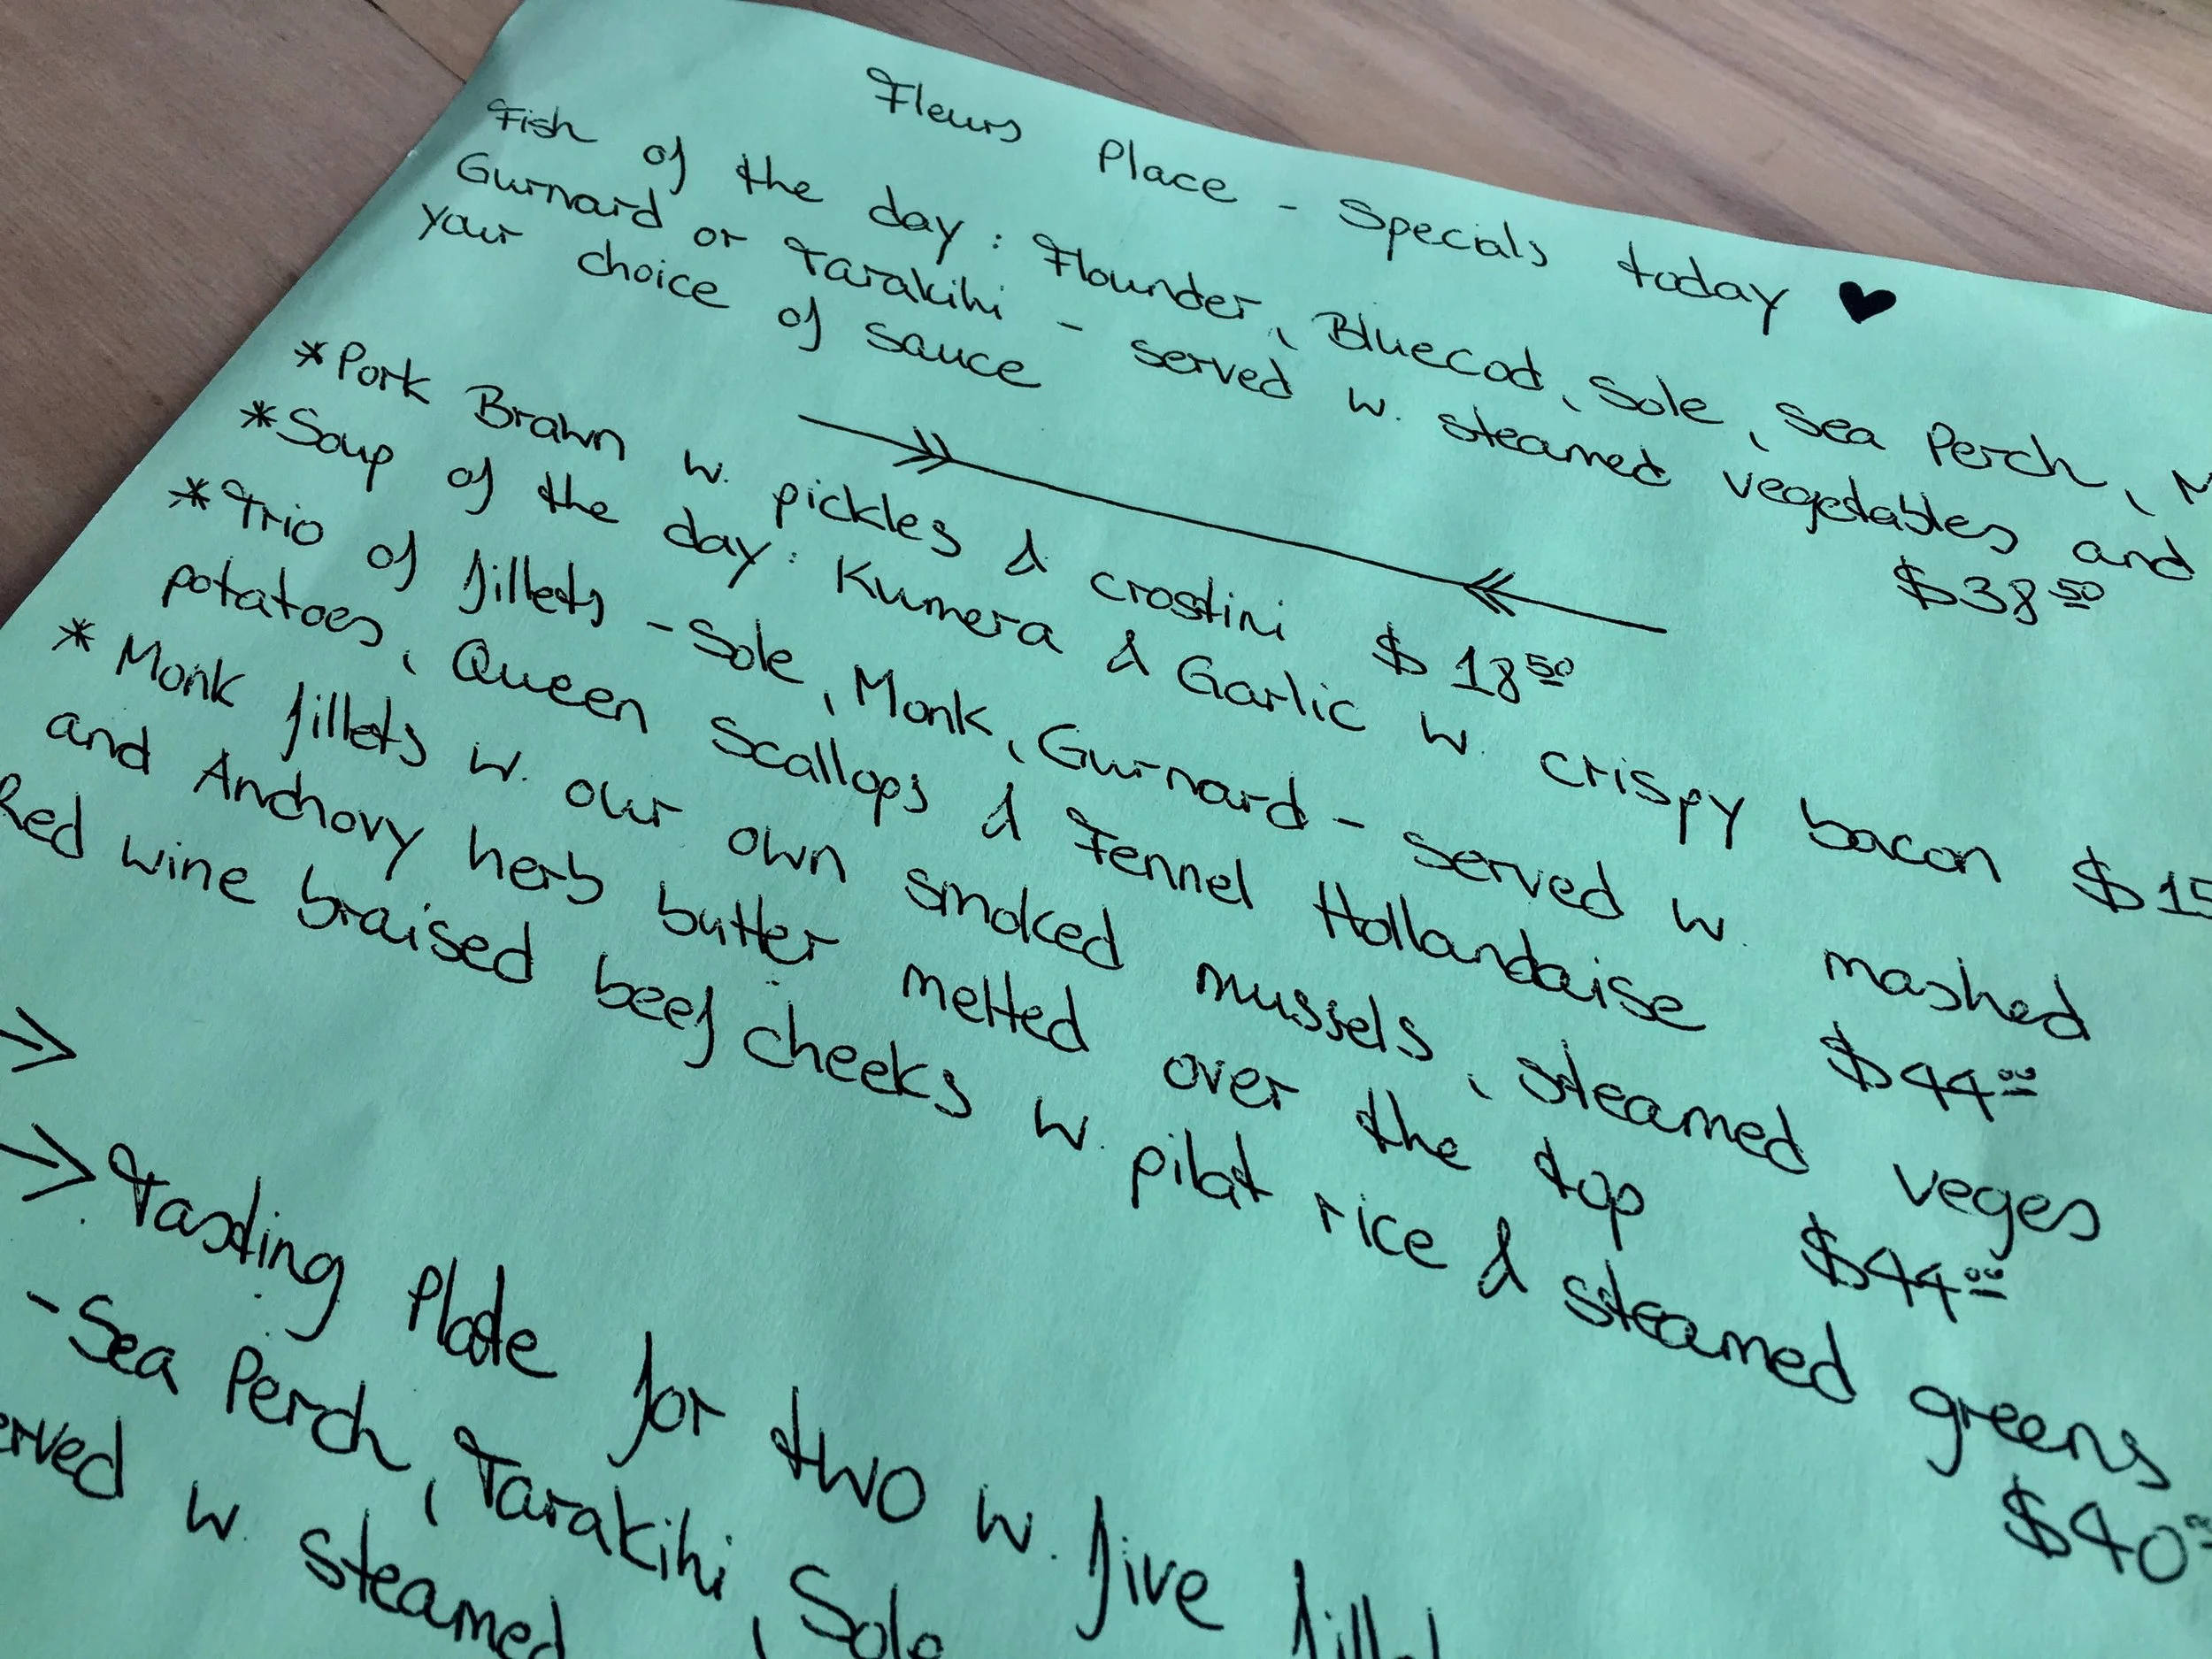 Fleurs Place - Specials today ♥
Fish of the day: Flounder, Bluecod, Sole, Sea Perch,
Gurnard or Tarakihi - served w. steamed vegetables and
your choice of sauce $38.50
*Pork Brawn w. pickles & crostini $18.50
*Soup of the day: Kumera & Garlic w. crispy bacon $15
*Trio of fillets - Sole, Monk, Gurnard - served w. mashed
potatoes, Queen Scallops & Fennel Hollandaise $44.00
*Monk fillets w. our own smoked mussels, steamed veges
and Anchovy herb butter melted over the top $44.00
Red wine braised beef cheeks w. pilat rice & steamed greens
$40
Tasting Plate for two w. five
-Sea Perch, Tarakihi, Sole
w. steamed